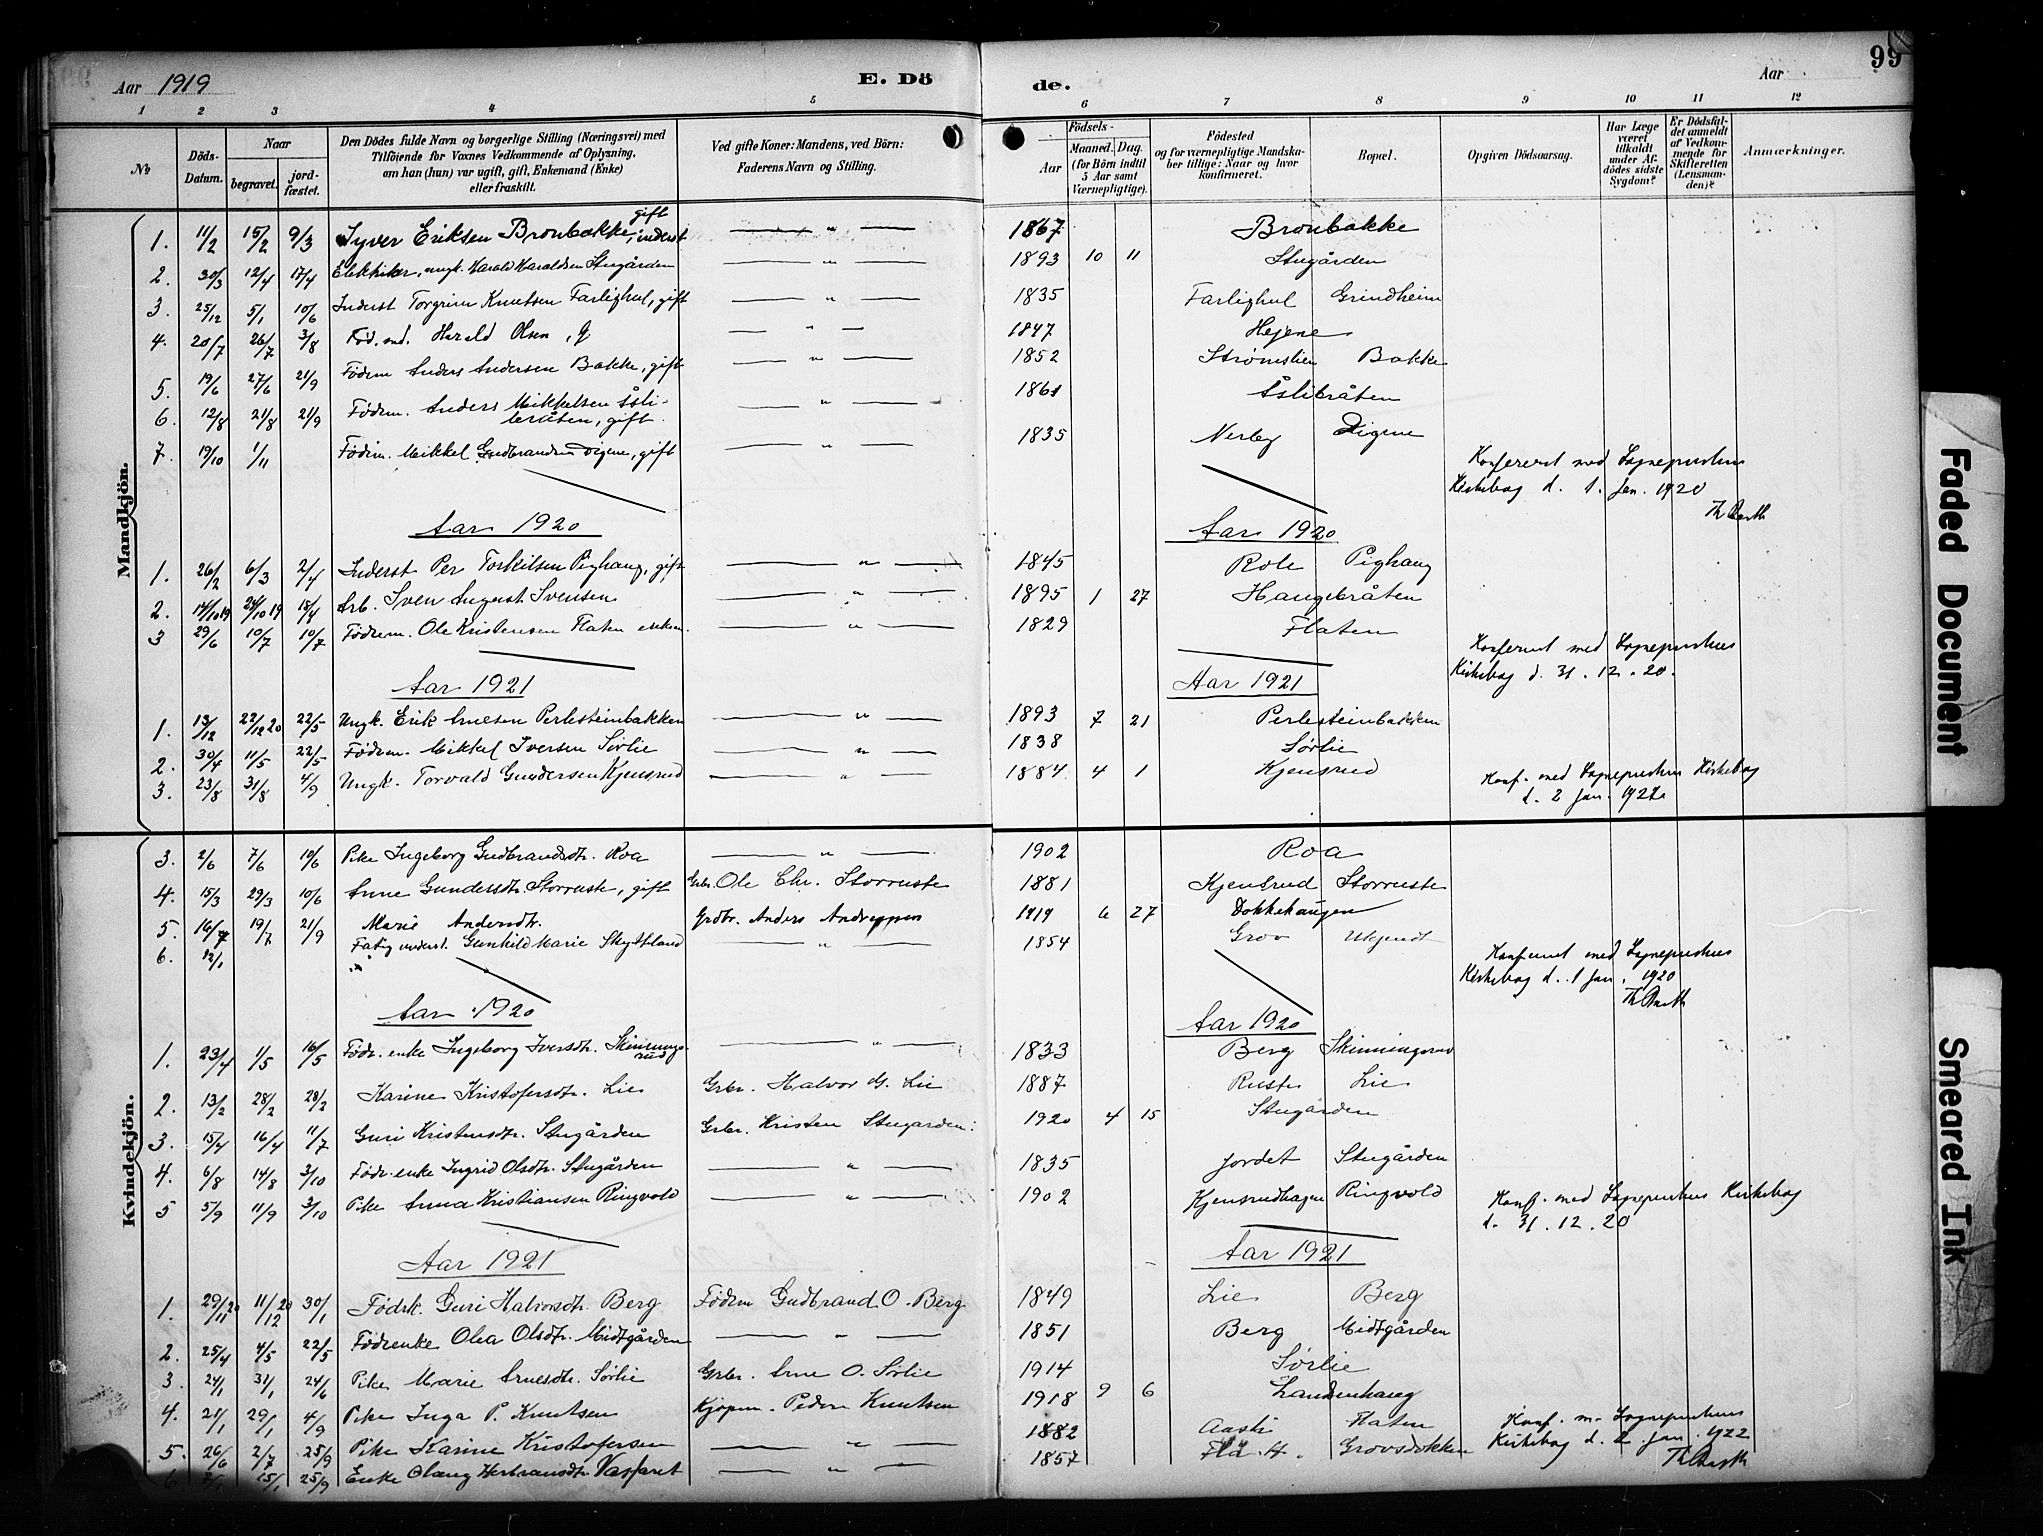 Aar 1919 E. Dö de. Aar 99
1 2 3 4 5 6 7 8 9 10 11 12
No Döds-Datum. Naar begravet. jordfæstet. Den Dödes fulde Navn og borgerlige Stilling (Næringsvei) med Tilföiende for Voxnes Vedkommende af Oplysning, om han (hun) var ugift, gift, Enkemand (Enke) eller fraskilt. Ved gifte Koner: Mandens, ved Börn: Faderens Navn og Stilling. Födsels- Aar Maaned. Dag. (for Börn indtil 5 Aar samt Værnepligtige). Födested og for værnepligtige Mandskaber tillige: Naar og hvor konfirmeret. Bopæl. Opgiven Dödsaarsag. Har Læge været tilkaldt under Afdödes sidste Sygdom? Er Dödsfaldet anmeldt af Vedkommende for Skifteretten (Lensmanden)? Anmærkninger.
Mandkjön.
1. 11/2 15/2 9/3 Syver Eriksen Bronbakke, inderst gift — " — 1867 Bronbakke
2. 30/3 12/4 17/4 Elektriker, ungk. Harald Haraldsen Stugården — " — 1893 10 11 Stugården
3. 25/12 5/1 10/6 Inderst Torgrim Knutsen Farlighul, gift — " — 1835 Farlighul Grindheim
4. 20/7 26/7 3/8 Fød. md. Harald Olsen, g — " — 1847 Hejene
5. 19/6 27/6 21/9 Fødrm Anders Andersen Bakke, gift — " — 1852 Strømslien Bakke
6. 12/8 21/8 21/9 Fødrm. Anders Mikkelsen Åslibråten, gift. — " — 1861 Åslibråten
7. 19/10 1/11 Fødrm. Mikkel Gudbrandsen Digene, gift — " — 1835 Nerby Digene
Konferert med Sognepresten's
Kirkebog d. 1. Jan. 1920
Th Barth
Aar 1920 Aar 1920
1. 26/2 6/3 2/4 Inderst Per Torkilsen Pighaug, gift — " — 1845 Role Pighaug
2. 14/10 19 24/10 19 18/4 Arb. Sven August Svensen — " — 1895 1 27 Haugebråten
3 29/6 10/7 10/7 Fødrm. Ole Kristensen Flaten enkem. — " — 1829 Flaten
Konferert med Sogneprestens
Kirkebog d. 31. 12. 20.
Aar 1921 Aar 1921
1. 13/12 22/12 20 22/5 Ungk. Erik Arnesen Perlesteinbakken — " — 1893 7 21 Perlesteinbakken
2. 30/4 11/5 22/5 Fødrm. Mikkel Iversen Sørlie — " — 1838 Sørlie
3. 23/8 31/8 4/9 Ungk. Torvald Gundersen Kjensrud — " — 1884 4 1 Kjensrud
Konf. med Sogneprestens Kirkebog
d. 2 Jan. 1922
Kvindekjön.
3. 2/6 7/6 10/6 Pike Ingeborg Gudbrandsdtr. Roa — " — 1902 Roa
4. 15/3 29/3 10/6 Anne Gundersdtr. Storruste, gift Grbr. Ole Chr. Storruste 1881 Kjensrud Storruste
5. 16/7 19/7 21/9 Marie Andersdtr. Grdbr. Anders Andreassen 1919 6 27 Dokkehaugen
6. 12/1 Fatig underst. Gunhild Marie Skytteland — " — 1854 Grov Ukjendt
Konferert med Sogneprestens
Kirkebog d. 1 Jan. 1920
Th Barth
Aar 1920 Aar 1920
1. 23/4 1/5 16/5 Fødr. enke Ingeborg Iversdtr. Skinningsrud — " — 1833 Berg Skinningsrud
2. 13/2 28/2 28/2 Karine Kristofersdtr. Lie Grbr. Halvor G. Lie 1887 Ruste Lie
3. 15/4 16/4 11/7 Guri Kristensdtr. Stugården Grbr. Kristen Stugarden 1920 4 15 Stugården
4. 6/8 14/8 3/10 Fødr. enke Ingrid Olsdtr. Stugården — " — 1835 Jordet Stugården
5 5/9 11/9 3/10 Pike Anna Kristiansen Ringvold — " — 1902 Kjensrudhagen Ringvold
Konf. med Sogneprestens Kirkebog
d. 31. 12. 20
Aar 1921 Aar 1921
1. 29/11 20 11/12 20 30/1 Fødrk. Guri Halvorsdtr. Berg Fødrm Gudbrand O. Berg 1849 Lie Berg
2. 25/4 4/5 22/5 Fødrenke Olea Olsdtr. Midtgården — " — 1851 Berg Midtgården
3. 24/1 31/1 24/6 Pike Marie Arnesdtr. Sørlie Grbr. Arne O. Sørlie 1914 Sørlie
4. 21/1 29/1 4/9 Pike Inga P. Knutsen Kjøpm. Peder Knutsen 1918 9 6 Sandenhaug
5. 26/6 2/7 25/9 Pike Karine Kristofersen — " — 1882 Aasli Flaten
6 15/1 25/9 Enke Olaug Herbrandsdtr. Vasfaret — " — 1857 Flå H. Grovsdokken
Konf. m. Sogneprestens
Kirkebog d. 2. Jan. 1922
Th Barth
Faded Document
Smeared Ink